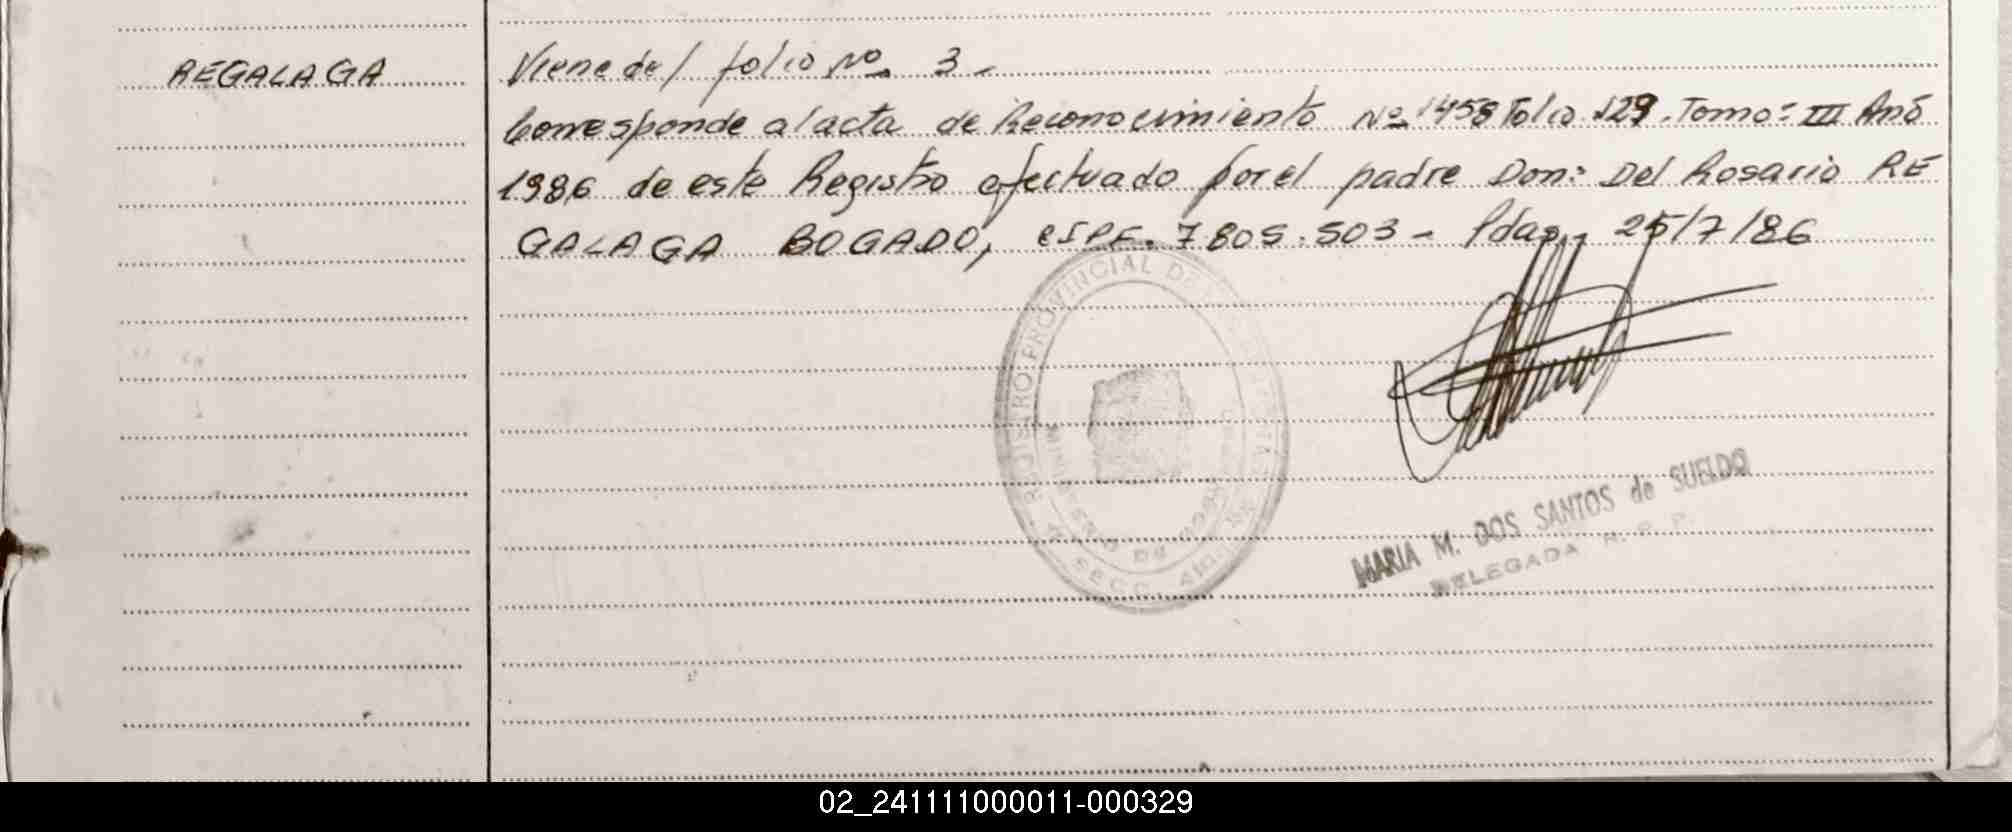 REGALAGA
Viene de/ folio Nº 3 -
Corresponde al acta de Reconocimiento Nº 1458 Folio 129. Tomo: III Año
1986 de este Registro efectuado por el padre Don: Del Rosario RE
GALAGA BOGADO, 7805.503 - Pdas, 25/7/86
PROVINCIAL DE
MARIA M. DOS SANTOS de SUELDO
DELEGADA R. P. P.
02_241111000011-000329